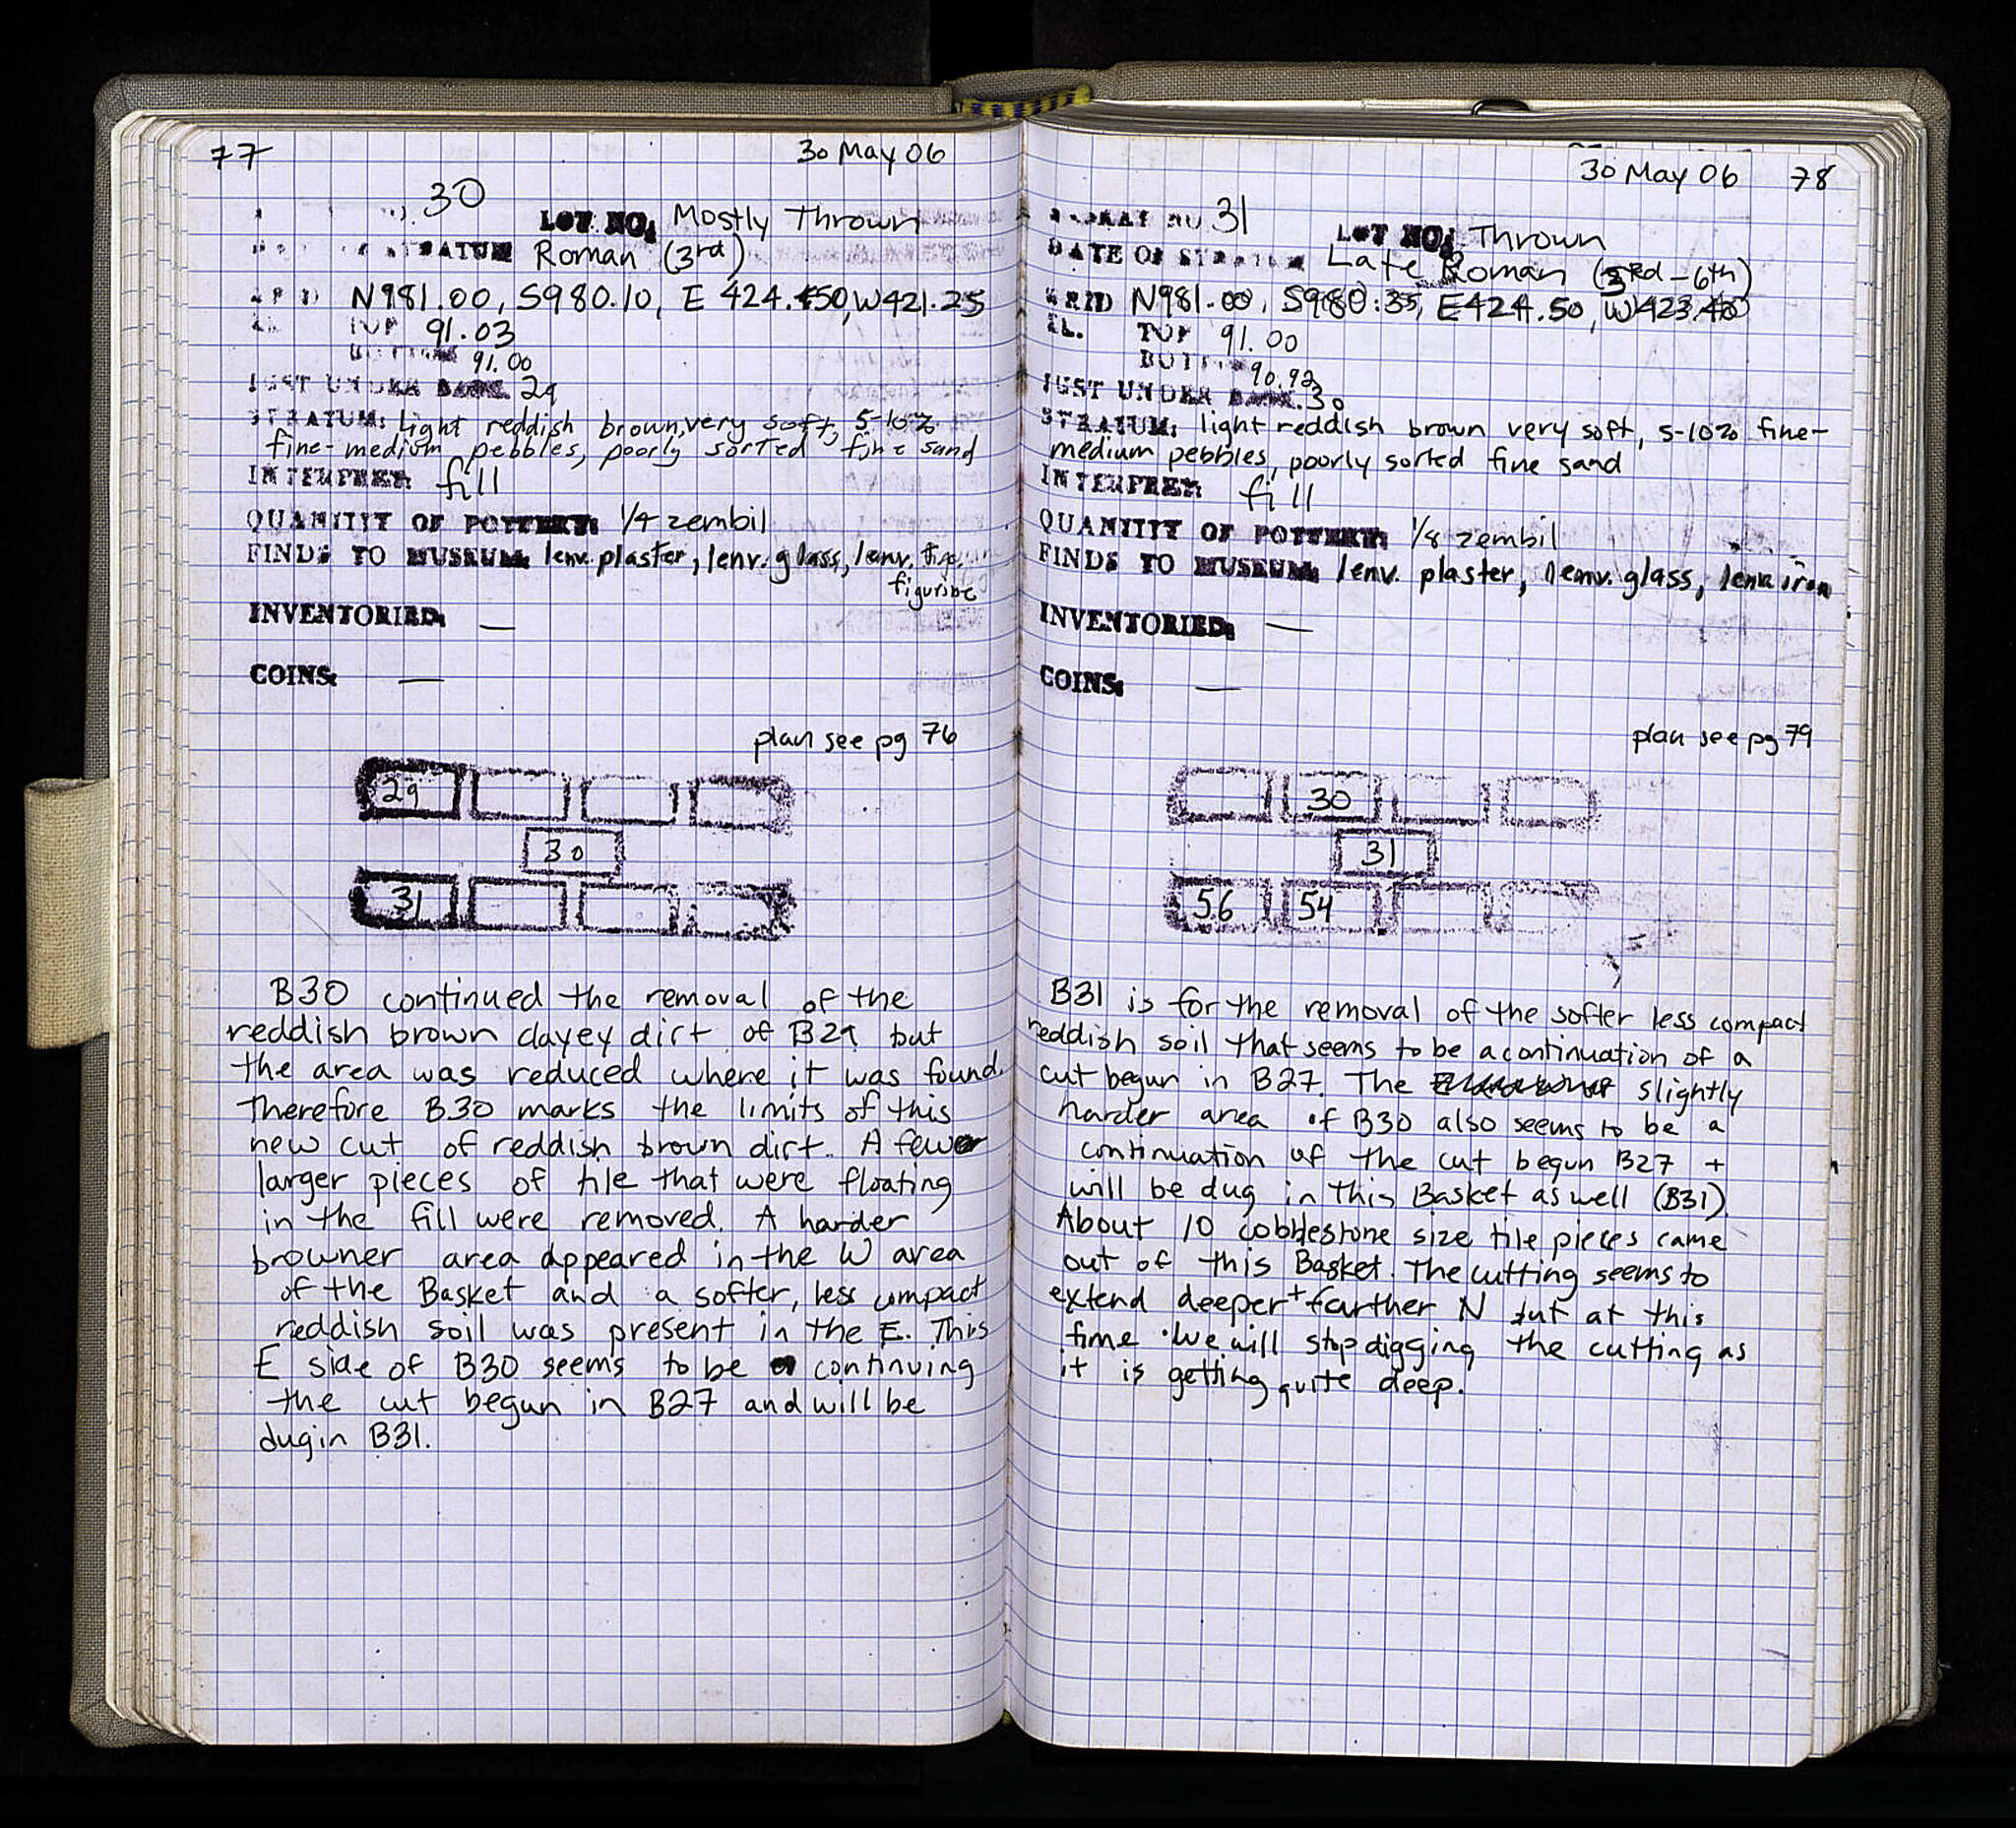 77
30 May 06
30
LOT NO: Mostly Thrown
STRATUM Roman (3rd)
GRID N981.00, S980.10, E 424.50, W421.25
EL. TOP 91.03
BOTTOM 91.00
JUST UNDER BASK. 29
STRATUM: light reddish brown, very soft, 5-10%
fine-medium pebbles, poorly sorted fine sand
INTERPRET: fill
QUANTITY OF POTTERY: 1/4 zembil
FINDS TO MUSEUM: 1env. plaster, 1env. glass, 1env.
figurine
INVENTORIED: —
COINS: —
plan see pg 76
29
30
31
B30 continued the removal of the
reddish brown clayey dirt of B29 but
the area was reduced where it was found.
Therefore B30 marks the limits of this
new cut of reddish brown dirt. A few
larger pieces of tile that were floating
in the fill were removed. A harder
browner area appeared in the W area
of the Basket and a softer, less compact
reddish soil was present in the E. This
E side of B30 seems to be continuing
the cut begun in B27 and will be
dug in B31.
30 May 06 78
BASKET NO 31
LOT NO: Thrown
DATE OF STRATUM Late Roman (3rd-6th)
GRID N981.00, S980.35, E424.50, W423.40
EL. TOP 91.00
BOTTOM 90.92
JUST UNDER BASK. 30
STRATUM: light reddish brown very soft, 5-10% fine-
medium pebbles, poorly sorted fine sand
INTERPRET: fill
QUANTITY OF POTTERY: 1/8 zembil
FINDS TO MUSEUM: 1env. plaster, 1env. glass, 1env. iron
INVENTORIED: —
COINS: —
plan see pg 79
30
31
56 54
B31 is for the removal of the softer less compact
reddish soil that seems to be a continuation of a
cut begun in B27. The slightly
harder area of B30 also seems to be a
continuation of the cut begun B27 +
will be dug in this Basket as well (B31).
About 10 cobblestone size tile pieces came
out of this Basket. The cutting seems to
extend deeper + farther N but at this
time we will stop digging the cutting as
it is getting quite deep.